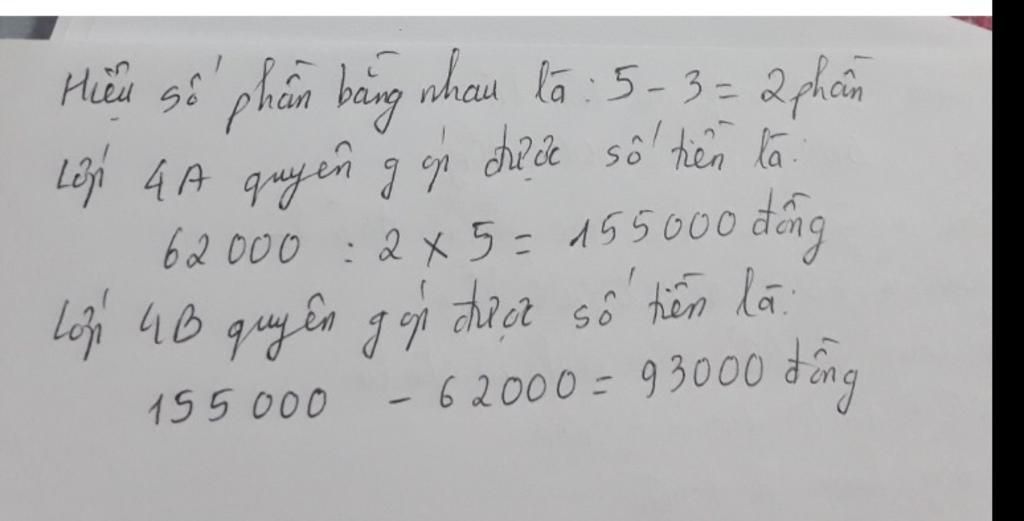 Hiệu số phần bằng nhau là: 5 - 3 = 2 phần
Lớp 4A quyên góp được số tiền là:
62 000 : 2 x 5 = 155 000 đồng
Lớp 4B quyên góp được số tiền là:
155 000 - 62000 = 93000 đồng